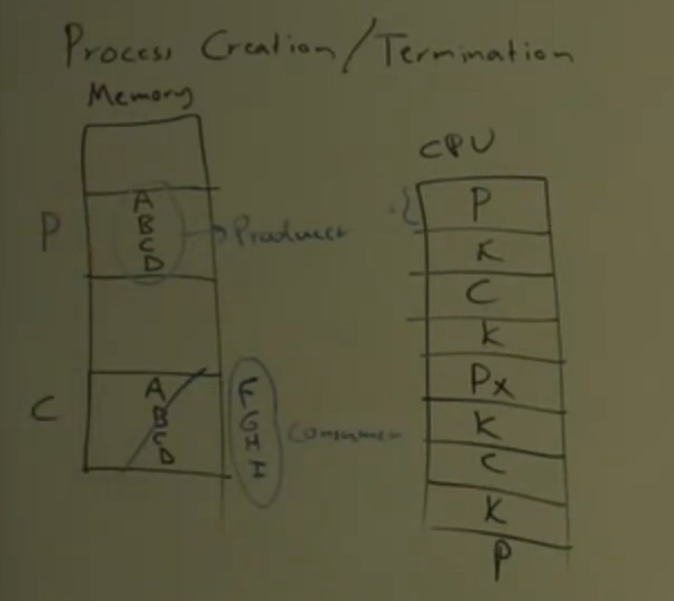 Process Creation/Termination
Memory
P
A
B
C
D
Producer
C
A
B
C
D
F
G
H
I
Consumer
CPU
P
K
C
K
Px
K
C
K
P